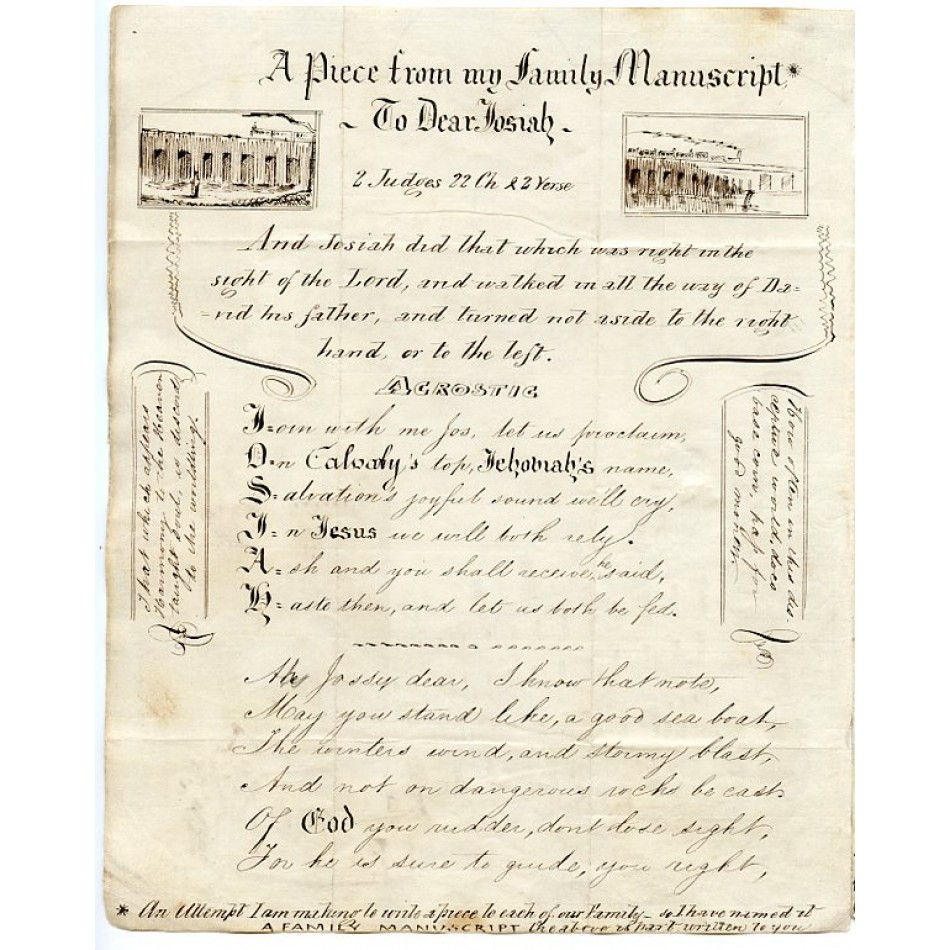 A Piece from my Family Manuscript *
~ To Dear Josiah ~
2 Judges 22 Ch & 2 Verse
And Josiah did that which was right in the
sight of the Lord, and walked in all the way of Da=
=vid his father, and turned not aside to the right
hand, or to the left.
ACROSTIC
J=oin with me Jos, let us proclaim,
O=n Calvaly's top, Jehoviah's name,
S=alvation's joyful sound we'll cry,
I=n Jesus we will both rely.
A=sk and you shall receive, he said,
H=aste then, and let us both be fed.
That which appears
Harmony to the Heaven
taught Soul, is discord
to the worldling.
How often in this dis-
ceptive world, does
base coin, pass for
good money.
My Jossy dear, I know that note,
May you stand like, a good sea boat,
The winters wind, and stormy blast,
And not on dangerous rocks be cast.
Of God you rudder, dont lose sight,
For he is sure to guide, you right,
* An Attempt I am making to write a piece to each of our Family – so I have named it
A FAMILY MANUSCRIPT the above is part written to you